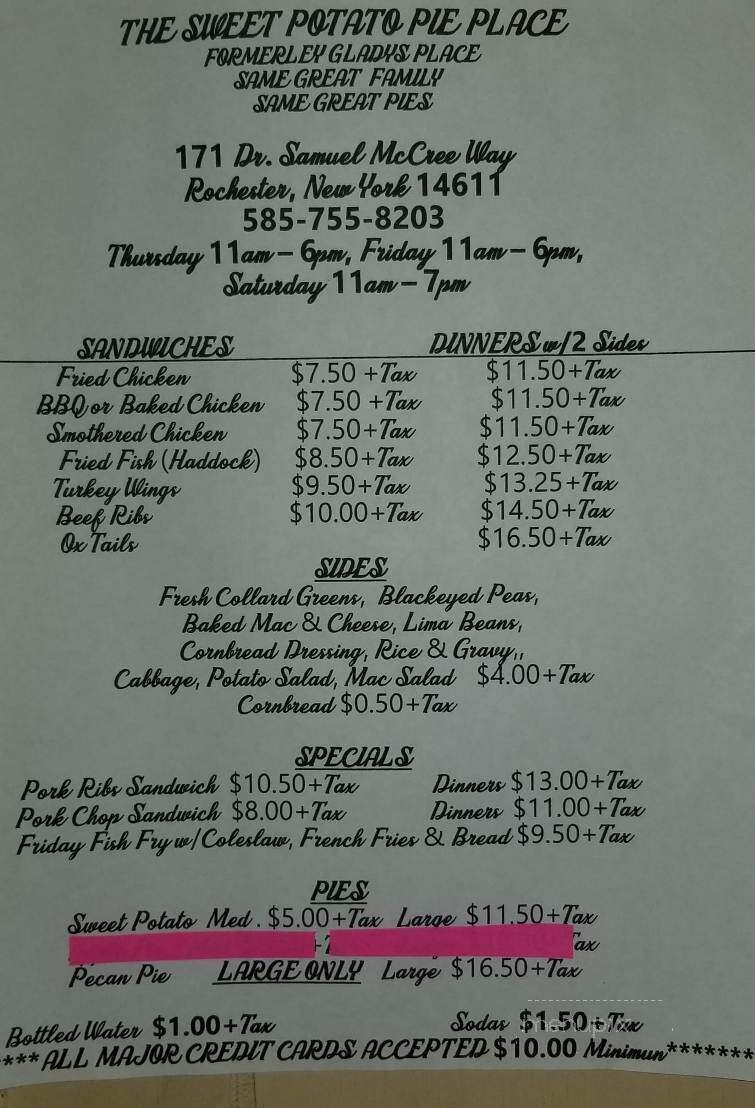 THE SWEET POTATO PIE PLACE
FORMERLEY GLADYS PLACE
SAME GREAT FAMILY
SAME GREAT PIES
171 Dr. Samuel McCree Way
Rochester, New York 14611
585-755-8203
Thursday 11am – 6pm, Friday 11am – 6pm,
Saturday 11am – 7pm
SANDWICHES DINNERS w/2 Sides
Fried Chicken $7.50 +Tax $11.50+Tax
BBQ or Baked Chicken $7.50 +Tax $11.50+Tax
Smothered Chicken $7.50+Tax $11.50+Tax
Fried Fish (Haddock) $8.50+Tax $12.50+Tax
Turkey Wings $9.50+Tax $13.25+Tax
Beef Ribs $10.00+Tax $14.50+Tax
Ox Tails $16.50+Tax
SIDES
Fresh Collard Greens, Blackeyed Peas,
Baked Mac & Cheese, Lima Beans,
Cornbread Dressing, Rice & Gravy,,
Cabbage, Potato Salad, Mac Salad $4.00+Tax
Cornbread $0.50+Tax
SPECIALS
Pork Ribs Sandwich $10.50+Tax Dinners $13.00+Tax
Pork Chop Sandwich $8.00+Tax Dinners $11.00+Tax
Friday Fish Fry w/Coleslaw, French Fries & Bread $9.50+Tax
PIES
Sweet Potato Med. $5.00+Tax Large $11.50+Tax
ax
Pecan Pie LARGE ONLY Large $16.50+Tax
Bottled Water $1.00+Tax Sodas $1.50+Tax
****ALL MAJOR CREDIT CARDS ACCEPTED $10.00 Minimun*******